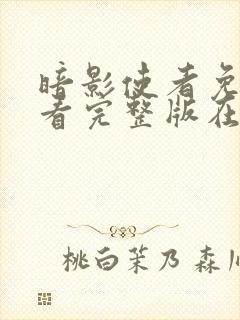 暗影使者免
看完整版在
桃白茉乃 森川